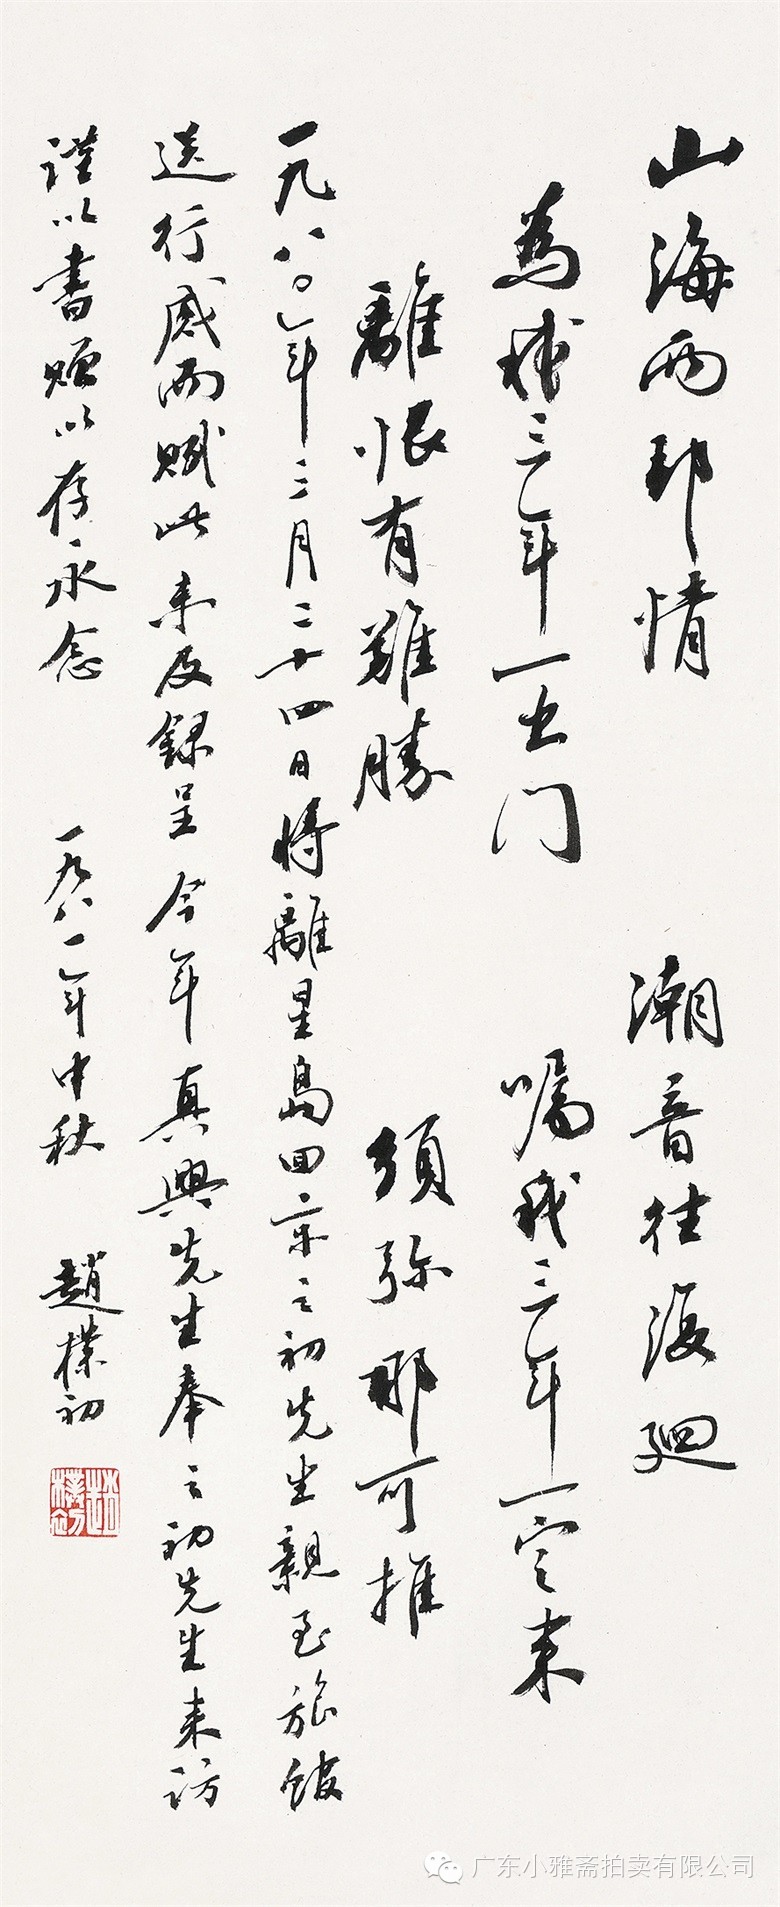 山海两邦情　潮音往复廻
為穪三年一出门　嘱我三年一定来
離恨有難勝　须弥那可推
一九八〇年三月二十四日将離星島回京之初先生親至旅馆
送行感而赋此未及録呈今年真興先生奉之初先生来访
謹以書赠以存永念　一九八一年中秋　趙樸初
趙樸初
广东小雅斋拍卖有限公司